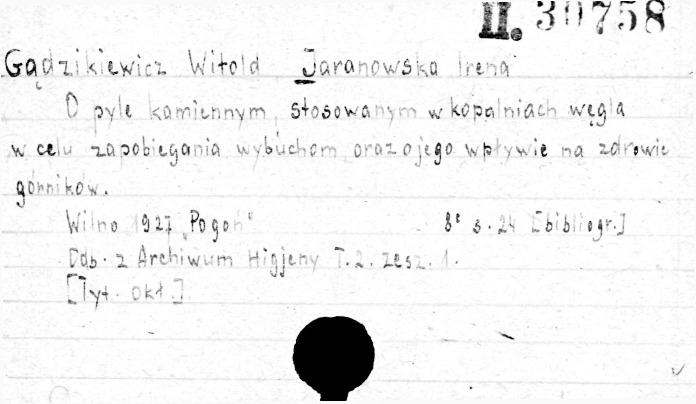 II. 30758
Gądzikiewicz Witold Jaranowska Irena
O pyle kamiennym, stosowanym w kopalniach węgla
w celu zapobiegania wybuchom oraz o jego wpływie na zdrowie
górników.
Wilno 1927 „Pogoń" 8° s. 24 [bibliogr.]
Odb. z Archiwum Higjeny T. 2. zesz. 1.
[Tyt. okł.]